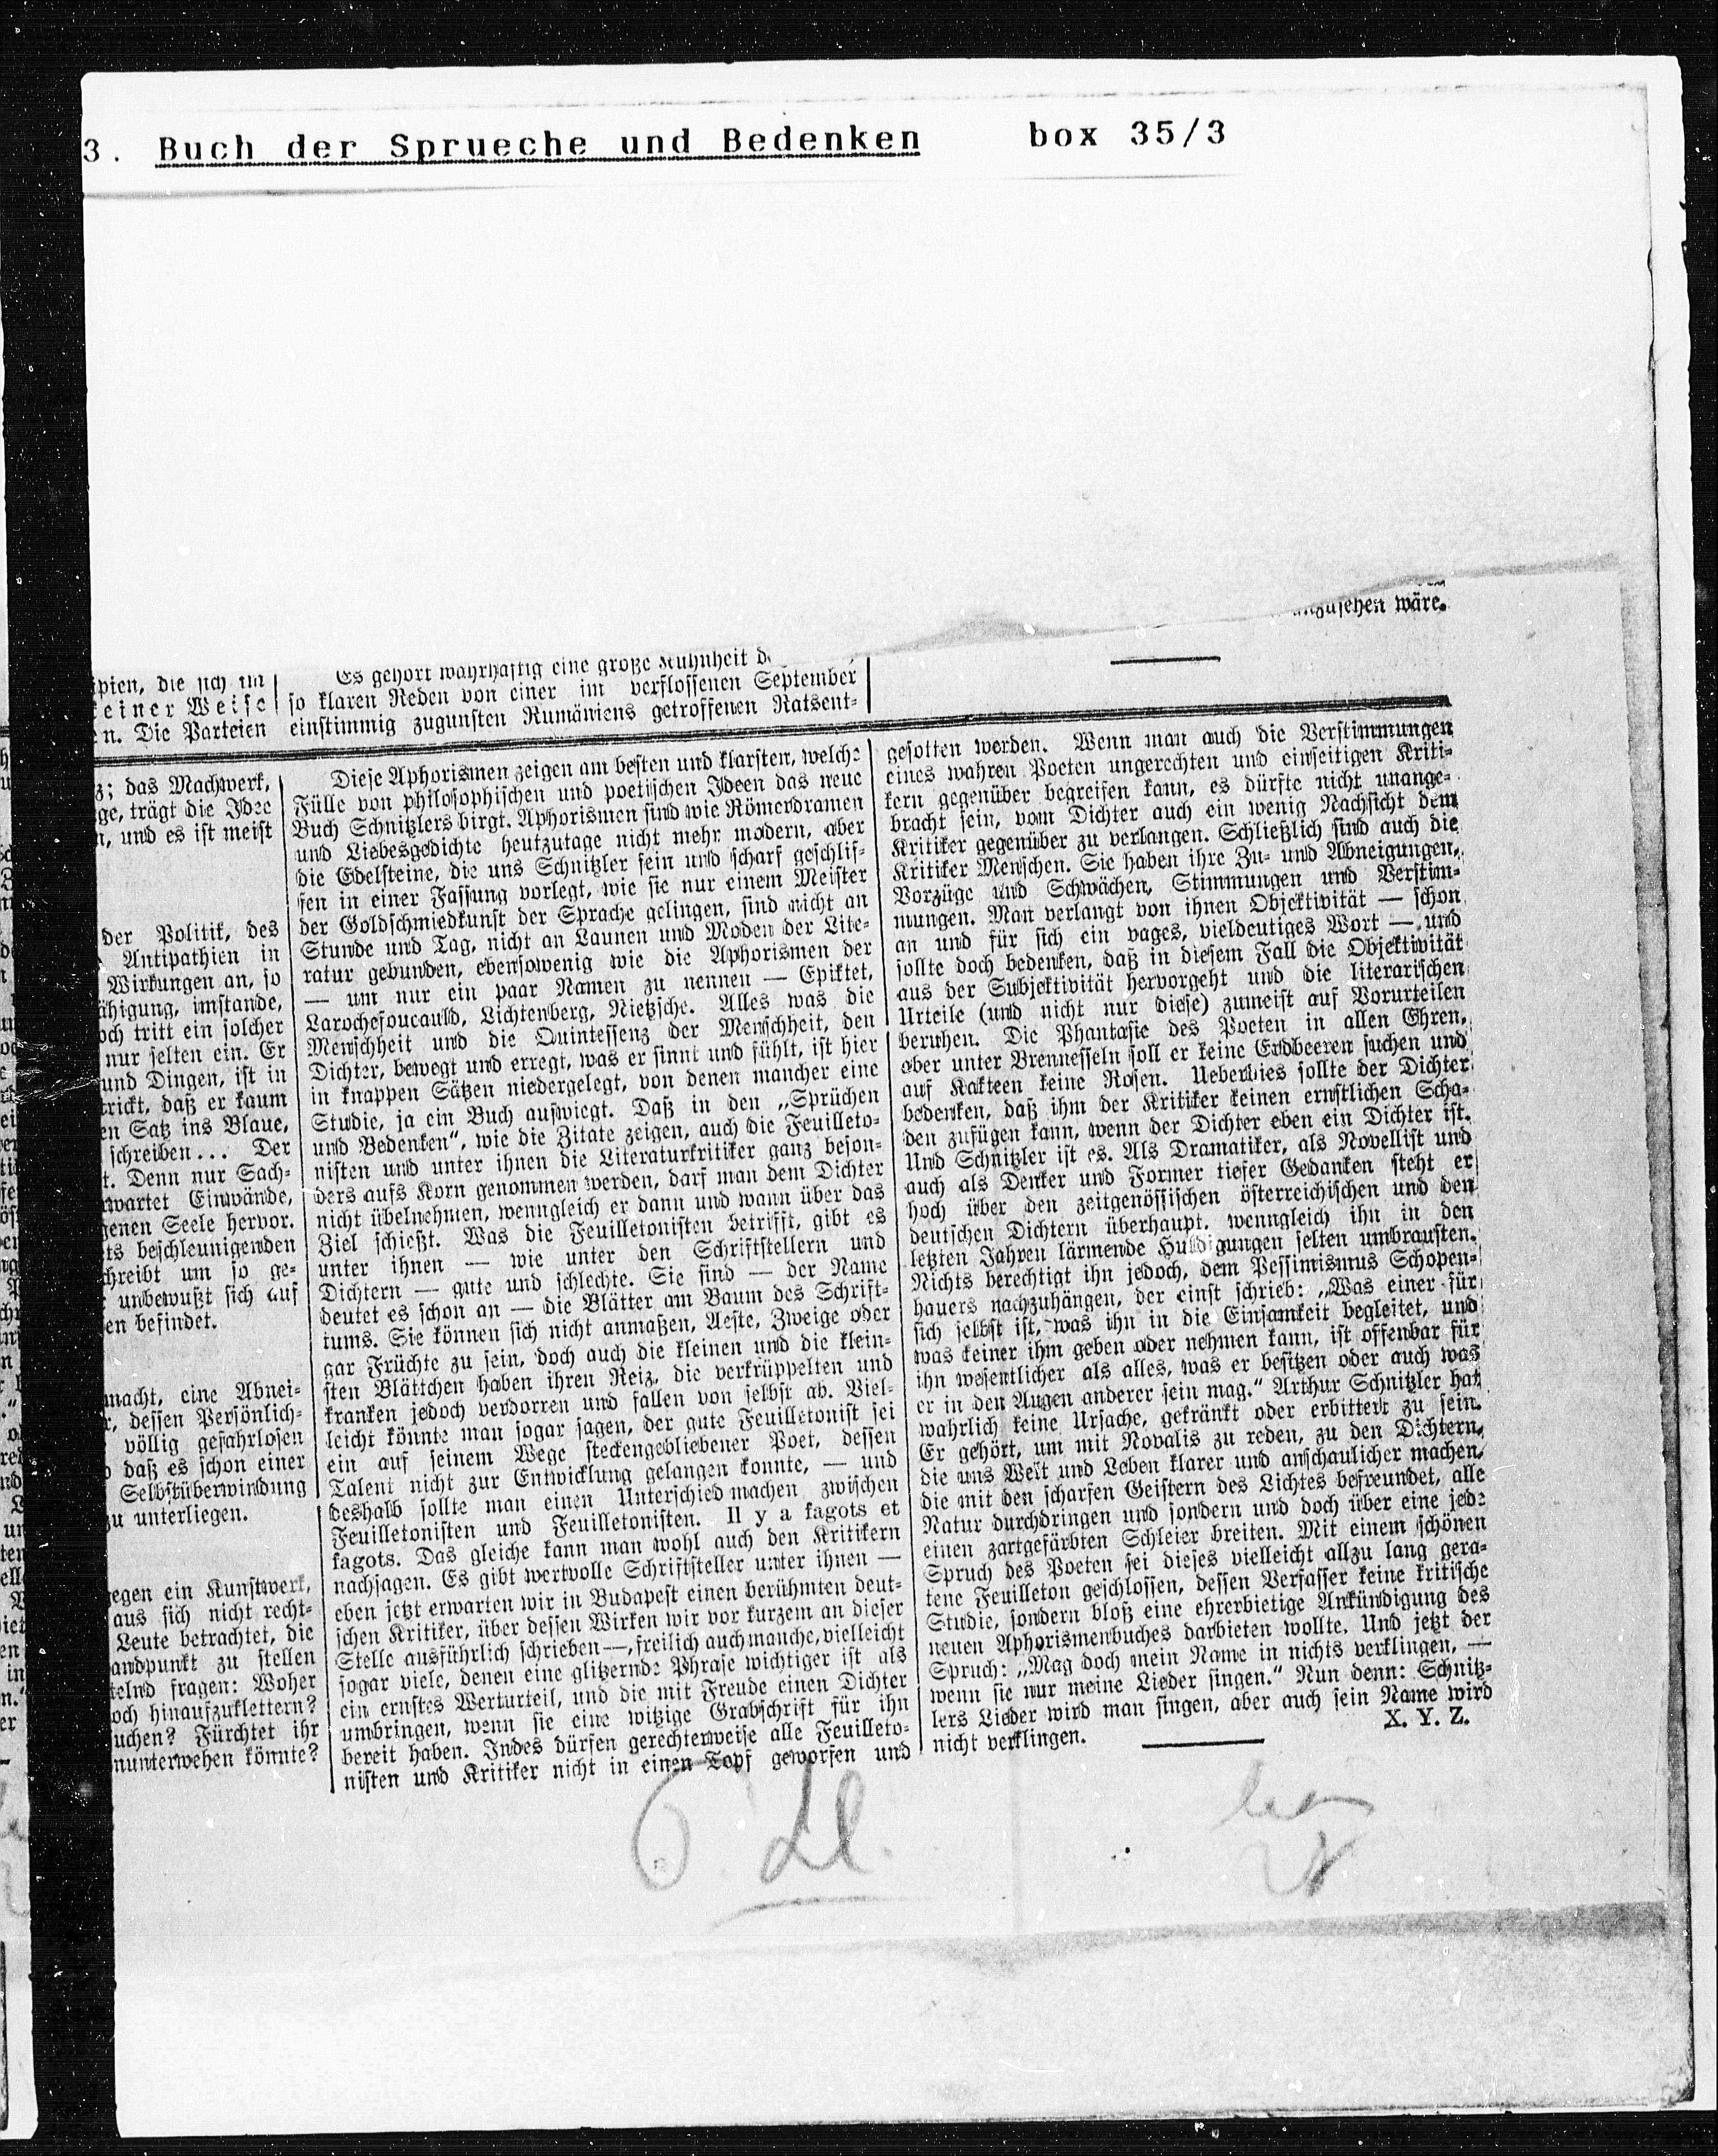 3. Buch der Sprueche und Bedenken box 35/3
wäre.
die sich im
einer Weise
n. Die Parteien
Es gehört wahrhaftig eine große Kühnheit
so klaren Reden von einer im verflossenen September
einstimmig zugunsten Rumäniens getroffenen Ratsent-
das Machwerk,
trägt die Idee
und es ist meist
der Politik, des
Antipathien in
Wirkungen an, so
imstande,
tritt ein solcher
nur selten ein. Er
und Dingen, ist in
daß er kaum
Satz ins Blaue,
schreiben... Der
Denn nur Sach-
Einwände,
Seele hervor.
beschleunigenden
um so ge-
unbewußt sich auf
befindet.
eine Abnei-
dessen Persönlich-
völlig gefahrlosen
daß es schon einer
Selbstüberwindung
zu unterliegen.
ein Kunstwerk,
aus sich nicht recht-
Leute betrachtet, die
zu stellen
fragen: Woher
hinaufzuklettern?
Fürchtet ihr
könnte?
Diese Aphorismen zeigen am besten und klarsten, welche
Fülle von philosophischen und poetischen Ideen das neue
Buch Schnitzlers birgt. Aphorismen sind wie Römerdramen
und Liebesgedichte heutzutage nicht mehr modern, aber
die Edelsteine, die uns Schnitzler fein und scharf geschlif-
fen in einer Fassung vorlegt, wie sie nur einem Meister
der Goldschmiedkunst der Sprache gelingen, sind nicht an
Stunde und Tag, nicht an Launen und Moden der Lite-
ratur gebunden, ebensowenig wie die Aphorismen der
— um nur ein paar Namen zu nennen — Epiktet,
Larochefoucauld, Lichtenberg, Nietzsche. Alles was die
Menschheit und die Quintessenz der Menschheit, den
Dichter, bewegt und erregt, was er sinnt und fühlt, ist hier
in knappen Sätzen niedergelegt, von denen mancher eine
Studie, ja ein Buch aufwiegt. Daß in den „Sprüchen
und Bedenken“, wie die Zitate zeigen, auch die Feuilleto-
nisten und unter ihnen die Literaturkritiker ganz beson-
ders aufs Korn genommen werden, darf man dem Dichter
nicht übelnehmen, wenngleich er dann und wann über das
Ziel schießt. Was die Feuilletonisten betrifft, gibt es
unter ihnen — wie unter den Schriftstellern und
Dichtern — gute und schlechte. Sie sind — der Name
deutet es schon an — die Blätter am Baum des Schrift-
tums. Sie können sich nicht anmaßen, Aeste, Zweige oder
gar Früchte zu sein, doch auch die kleinen und die klein-
sten Blättchen haben ihren Reiz, die verkrüppelten und
kranken jedoch verdorren und fallen von selbst ab. Viel-
leicht könnte man sogar sagen, der gute Feuilletonist sei
ein auf seinem Wege steckengebliebener Poet, dessen
Talent nicht zur Entwicklung gelangen konnte, — und
deshalb sollte man einen Unterschied machen zwischen
Feuilletonisten und Feuilletonisten. Il y a fagots et
fagots. Das gleiche kann man wohl auch den Kritikern
nachsagen. Es gibt wertvolle Schriftsteller unter ihnen —
eben jetzt erwarten wir in Budapest einen berühmten deut-
schen Kritiker, über dessen Wirken wir vor kurzem an dieser
Stelle ausführlich schrieben —, freilich auch manche, vielleicht
sogar viele, denen eine glitzernde Phrase wichtiger ist als
ein ernstes Werturteil, und die mit Freude einen Dichter
umbringen, wenn sie eine witzige Grabschrift für ihn
bereit haben. Indes dürfen gerechterweise alle Feuilleto-
nisten und Kritiker nicht in einen Topf geworfen und
gesotten werden. Wenn man auch die Verstimmungen
eines wahren Poeten ungerechten und einseitigen Kriti-
kern gegenüber begreifen kann, es dürfte nicht unange-
bracht sein, vom Dichter auch ein wenig Nachsicht dem
Kritiker gegenüber zu verlangen. Schließlich sind auch die
Kritiker Menschen. Sie haben ihre Zu- und Abneigungen,
Vorzüge und Schwächen, Stimmungen und Verstim-
mungen. Man verlangt von ihnen Objektivität — schon
an und für sich ein vages, vieldeutiges Wort — und
sollte doch bedenken, daß in diesem Fall die Objektivität
aus der Subjektivität hervorgeht und die literarischen
Urteile (und nicht nur diese) zumeist auf Vorurteilen
beruhen. Die Phantasie des Poeten in allen Ehren,
aber unter Brennesseln soll er keine Erdbeeren suchen und
auf Kakteen keine Rosen. Ueberdies sollte der Dichter
bedenken, daß ihm der Kritiker keinen ernstlichen Scha-
den zufügen kann, wenn der Dichter eben ein Dichter ist.
Und Schnitzler ist es. Als Dramatiker, als Novellist und
auch als Denker und Former tiefer Gedanken steht er
hoch über den zeitgenössischen österreichischen und den
deutschen Dichtern überhaupt, wenngleich ihn in den
letzten Jahren lärmende Huldigungen selten umbrausten.
Nichts berechtigt ihn jedoch, dem Pessimismus Schopen-
hauers nachzuhängen, der einst schrieb: „Was einer für
sich selbst ist, was ihn in die Einsamkeit begleitet, und
was keiner ihm geben oder nehmen kann, ist offenbar für
ihn wesentlicher als alles, was er besitzen oder auch was
er in den Augen anderer sein mag.“ Arthur Schnitzler hat
wahrlich keine Ursache, gekränkt oder erbittert zu sein.
Er gehört, um mit Novalis zu reden, zu den Dichtern,
die uns Welt und Leben klarer und anschaulicher machen,
die mit den scharfen Geistern des Lichtes befreundet, alle
Natur durchdringen und sondern und doch über eine jede
einen zartgefärbten Schleier breiten. Mit einem schönen
Spruch des Poeten sei dieses vielleicht allzu lang gera-
tene Feuilleton geschlossen, dessen Verfasser keine kritische
Studie, sondern bloß eine ehrerbietige Ankündigung des
neuen Aphorismenbuches darbieten wollte. Und jetzt der
Spruch: „Mag doch mein Name in nichts verklingen, —
wenn sie nur meine Lieder singen.“ Nun denn: Schnitz-
lers Lieder wird man singen, aber auch sein Name wird
nicht verklingen.
X. Y. Z.